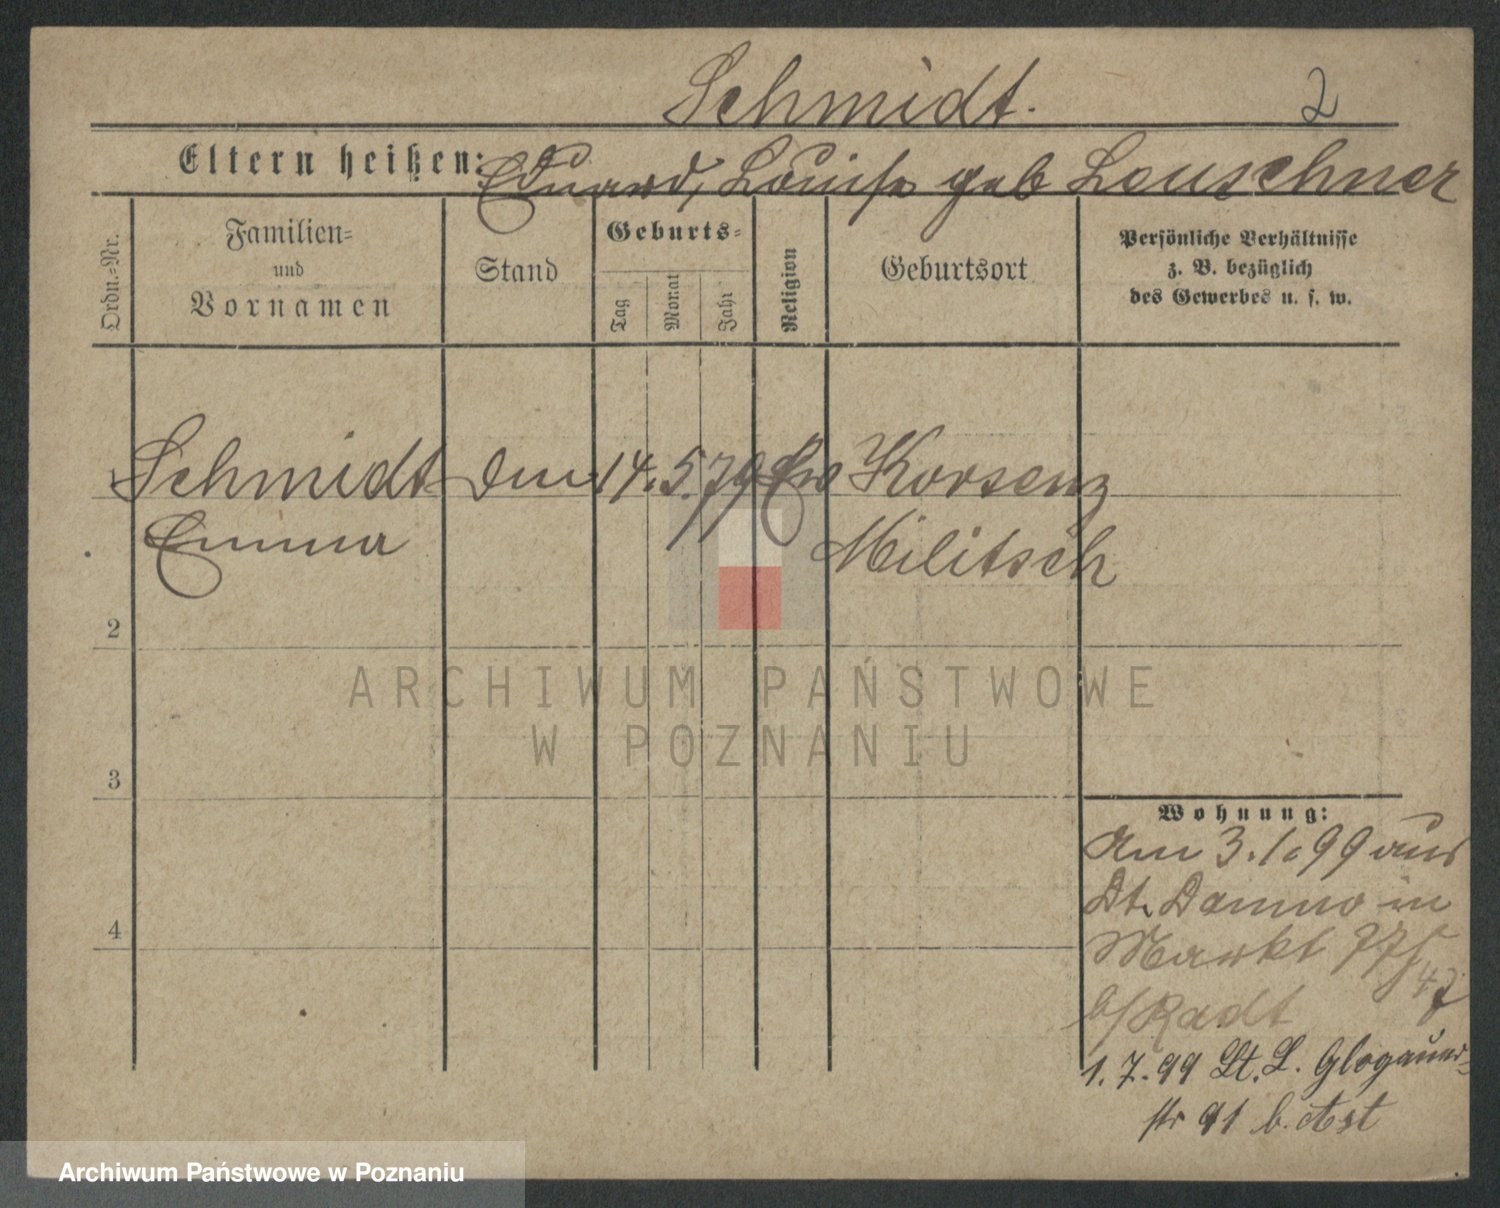 Schmidt. 2
Eltern heißen: Eduard, Louise geb Leuschner
Ordn.=Nr.
Familien=
und
Vornamen
Stand
Geburts=
Tag
Monat
Jahr
Religion
Geburtsort
Persönliche Verhältnisse
z. B. bezüglich
des Gewerbes u. s. w.
1 Schmidt 14. 5. 79 Korsenz
Emma Militsch
2
3
4
Wohnung:
Am 3. 1. 99 aus
Dt. in
Markt 77/
47
b/Radt
1. 7. 99 St. L. Glogauer-
str 91 b. Ast
ARCHIWUM PAŃSTWOWE
W POZNANIU
Archiwum Państwowe w Poznaniu